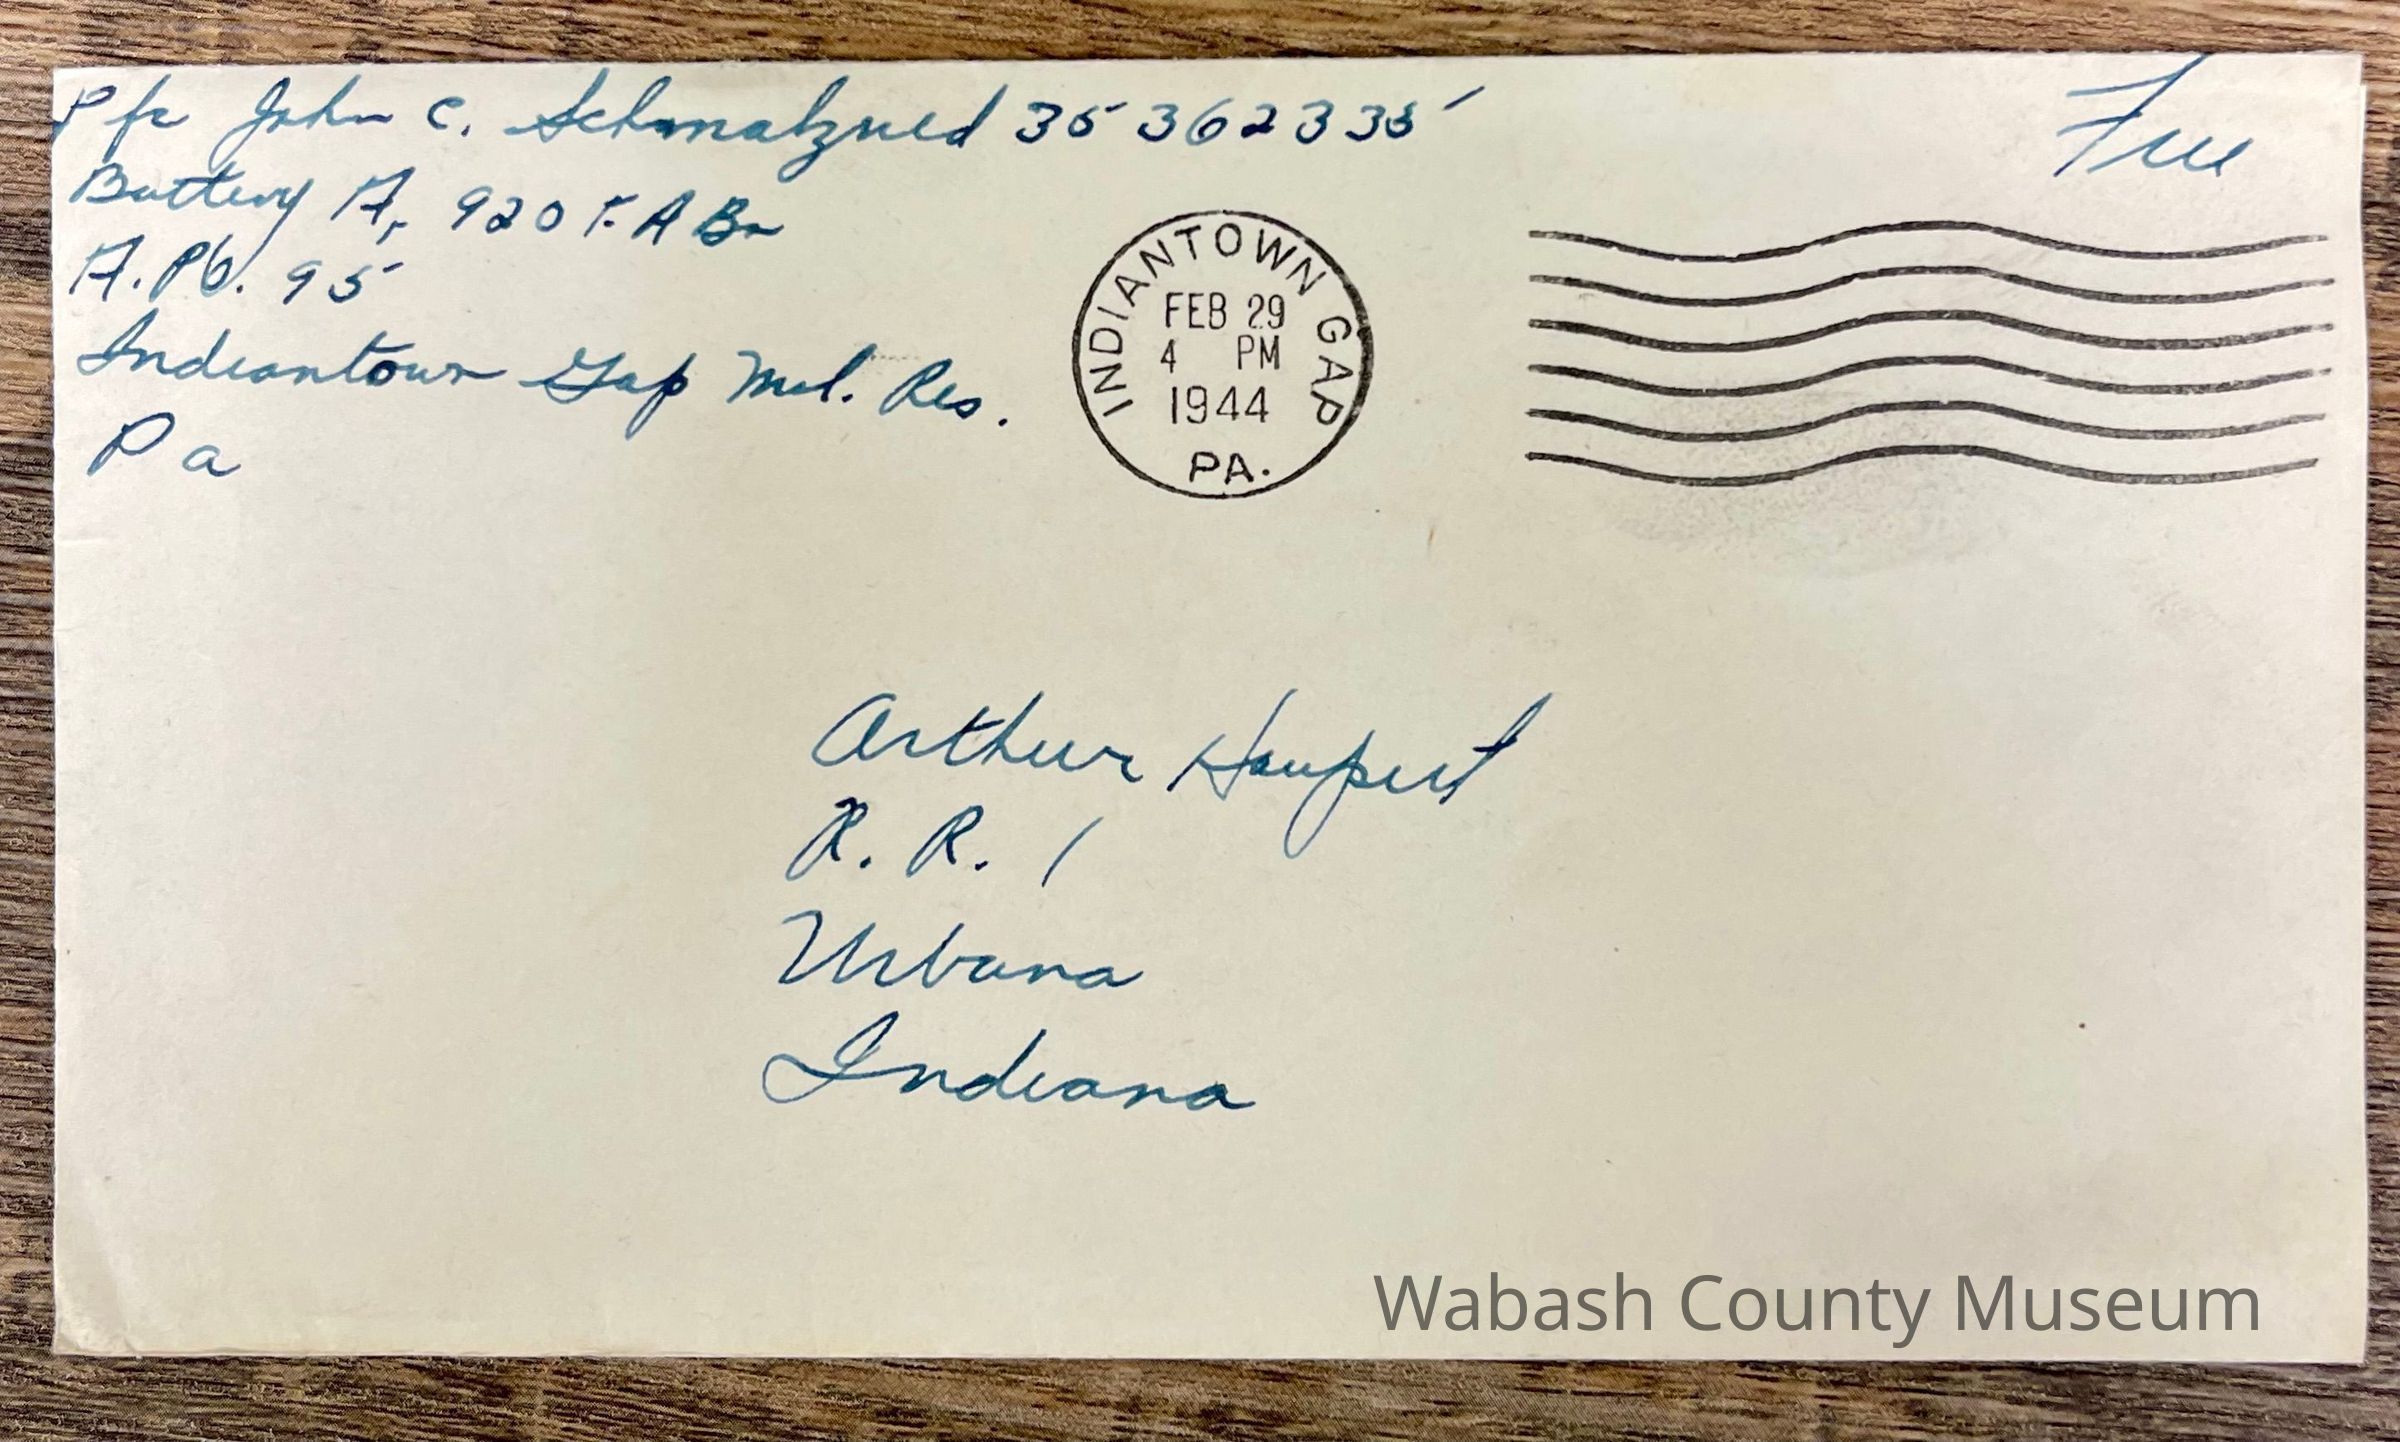 Pfc John C. Schmalzried 35 362 335
Battery A, 920 F. A Bn
A. PO. 95
Indiantown Gap Mil. Res.
Pa
Free
INDIANTOWN GAP
FEB 29
4 PM
1944
PA.
Arthur Haupert
R. R. 1
Urbana
Indiana
Wabash County Museum